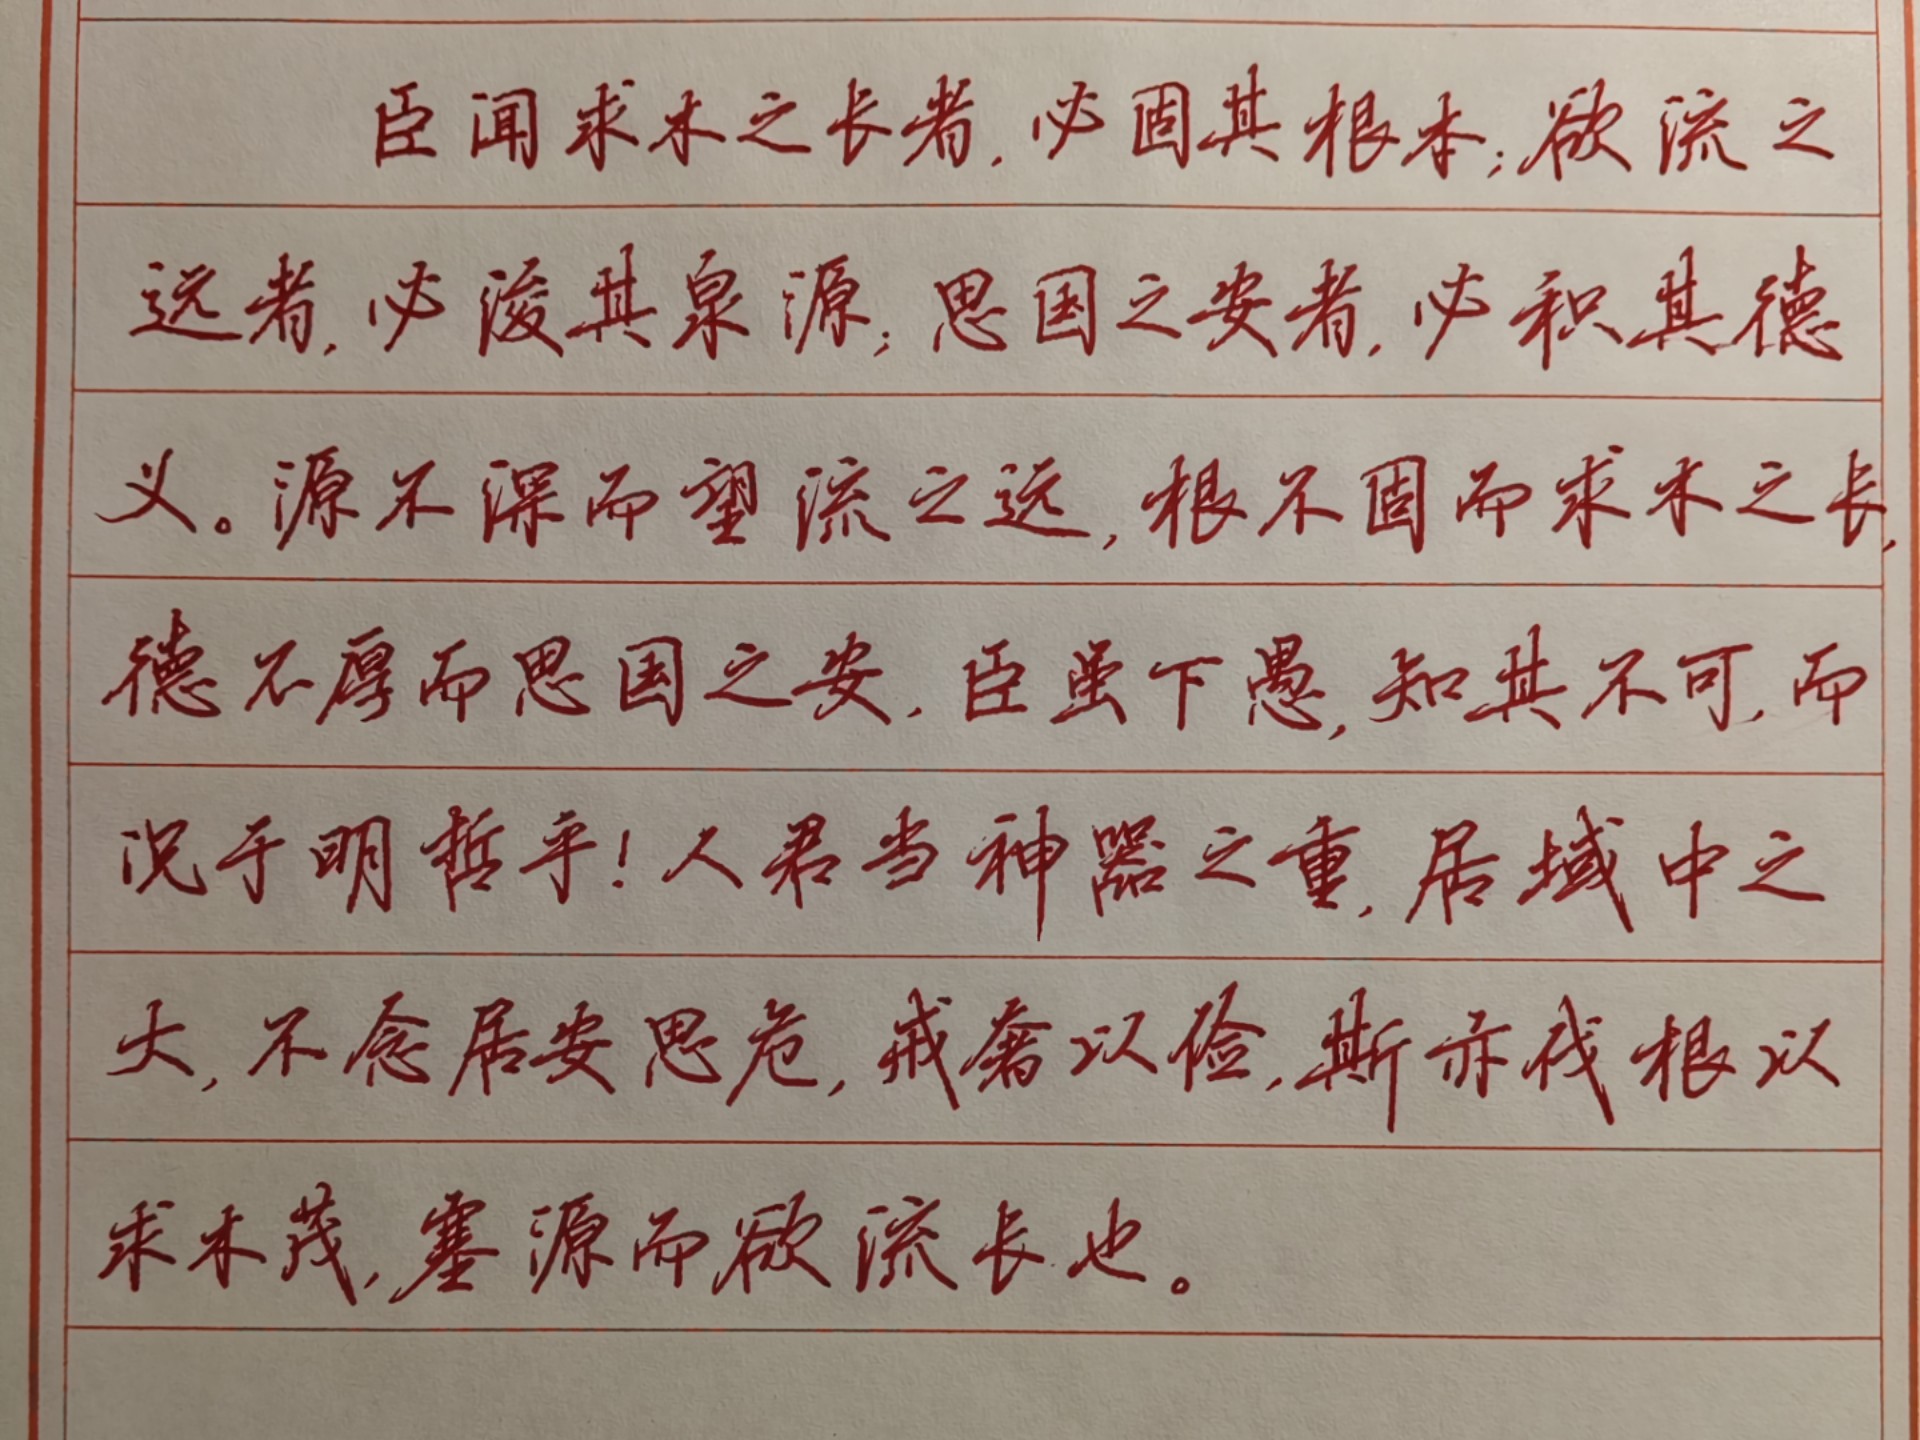 臣闻求木之长者，必固其根本；欲流之
远者，必浚其泉源；思国之安者，必积其德
义。源不深而望流之远，根不固而求木之长，
德不厚而思国之安，臣虽下愚，知其不可，而
况于明哲乎！人君当神器之重，居域中之
大，不念居安思危，戒奢以俭，斯亦伐根以
求木茂，塞源而欲流长也。